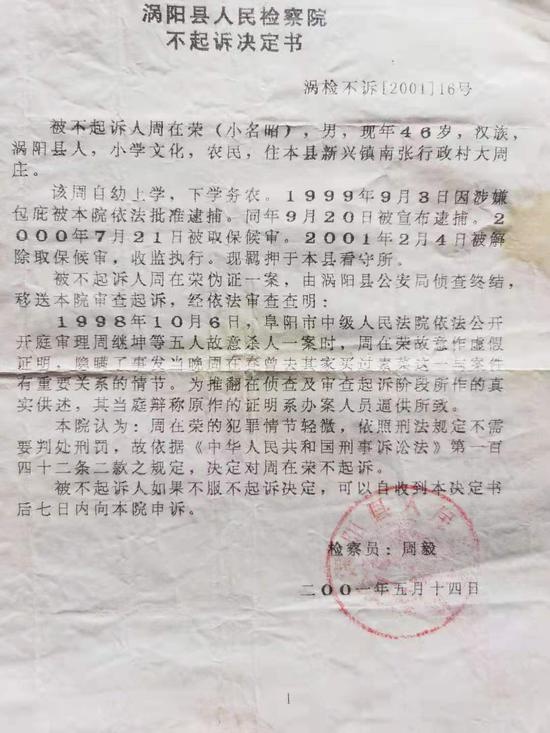 涡阳县人民检察院
不起诉决定书
涡检不诉[2001]16号
被不起诉人周在荣(小名昭),男,现年46岁,汉族,
涡阳县人,小学文化,农民,住本县新兴镇南张行政村大周
庄。
该周自幼上学,下学务农。1999年9月3日因涉嫌
包庇被本院依法批准逮捕。同年9月20日被宣布逮捕。2
000年7月21日被取保候审。2001年2月4日被解
除取保候审,收监执行。现羁押于本县看守所。
被不起诉人周在荣伪证一案,由涡阳县公安局侦查终结,
移送本院审查起诉,经依法审查查明:
1998年10月6日,阜阳市中级人民法院依法公开
开庭审理周继坤等五人故意杀人一案时,周在荣故意作虚假
证明,隐瞒了事发当晚周在春曾去其家买过素菜这一与案件
有重要关系的情节。为推翻在侦查及审查起诉阶段所作的真
实供述,其当庭辩称原作的证明系办案人员逼供所致。
本院认为:周在荣的犯罪情节轻微,依照刑法规定不需
要判处刑罚,故依据《中华人民共和国刑事诉讼法》第一百
四十二条二款之规定,决定对周在荣不起诉。
被不起诉人如果不服不起诉决定,可以自收到本决定书
后七日内向本院申诉。
检察员:周毅
二00一年五月十四日
1